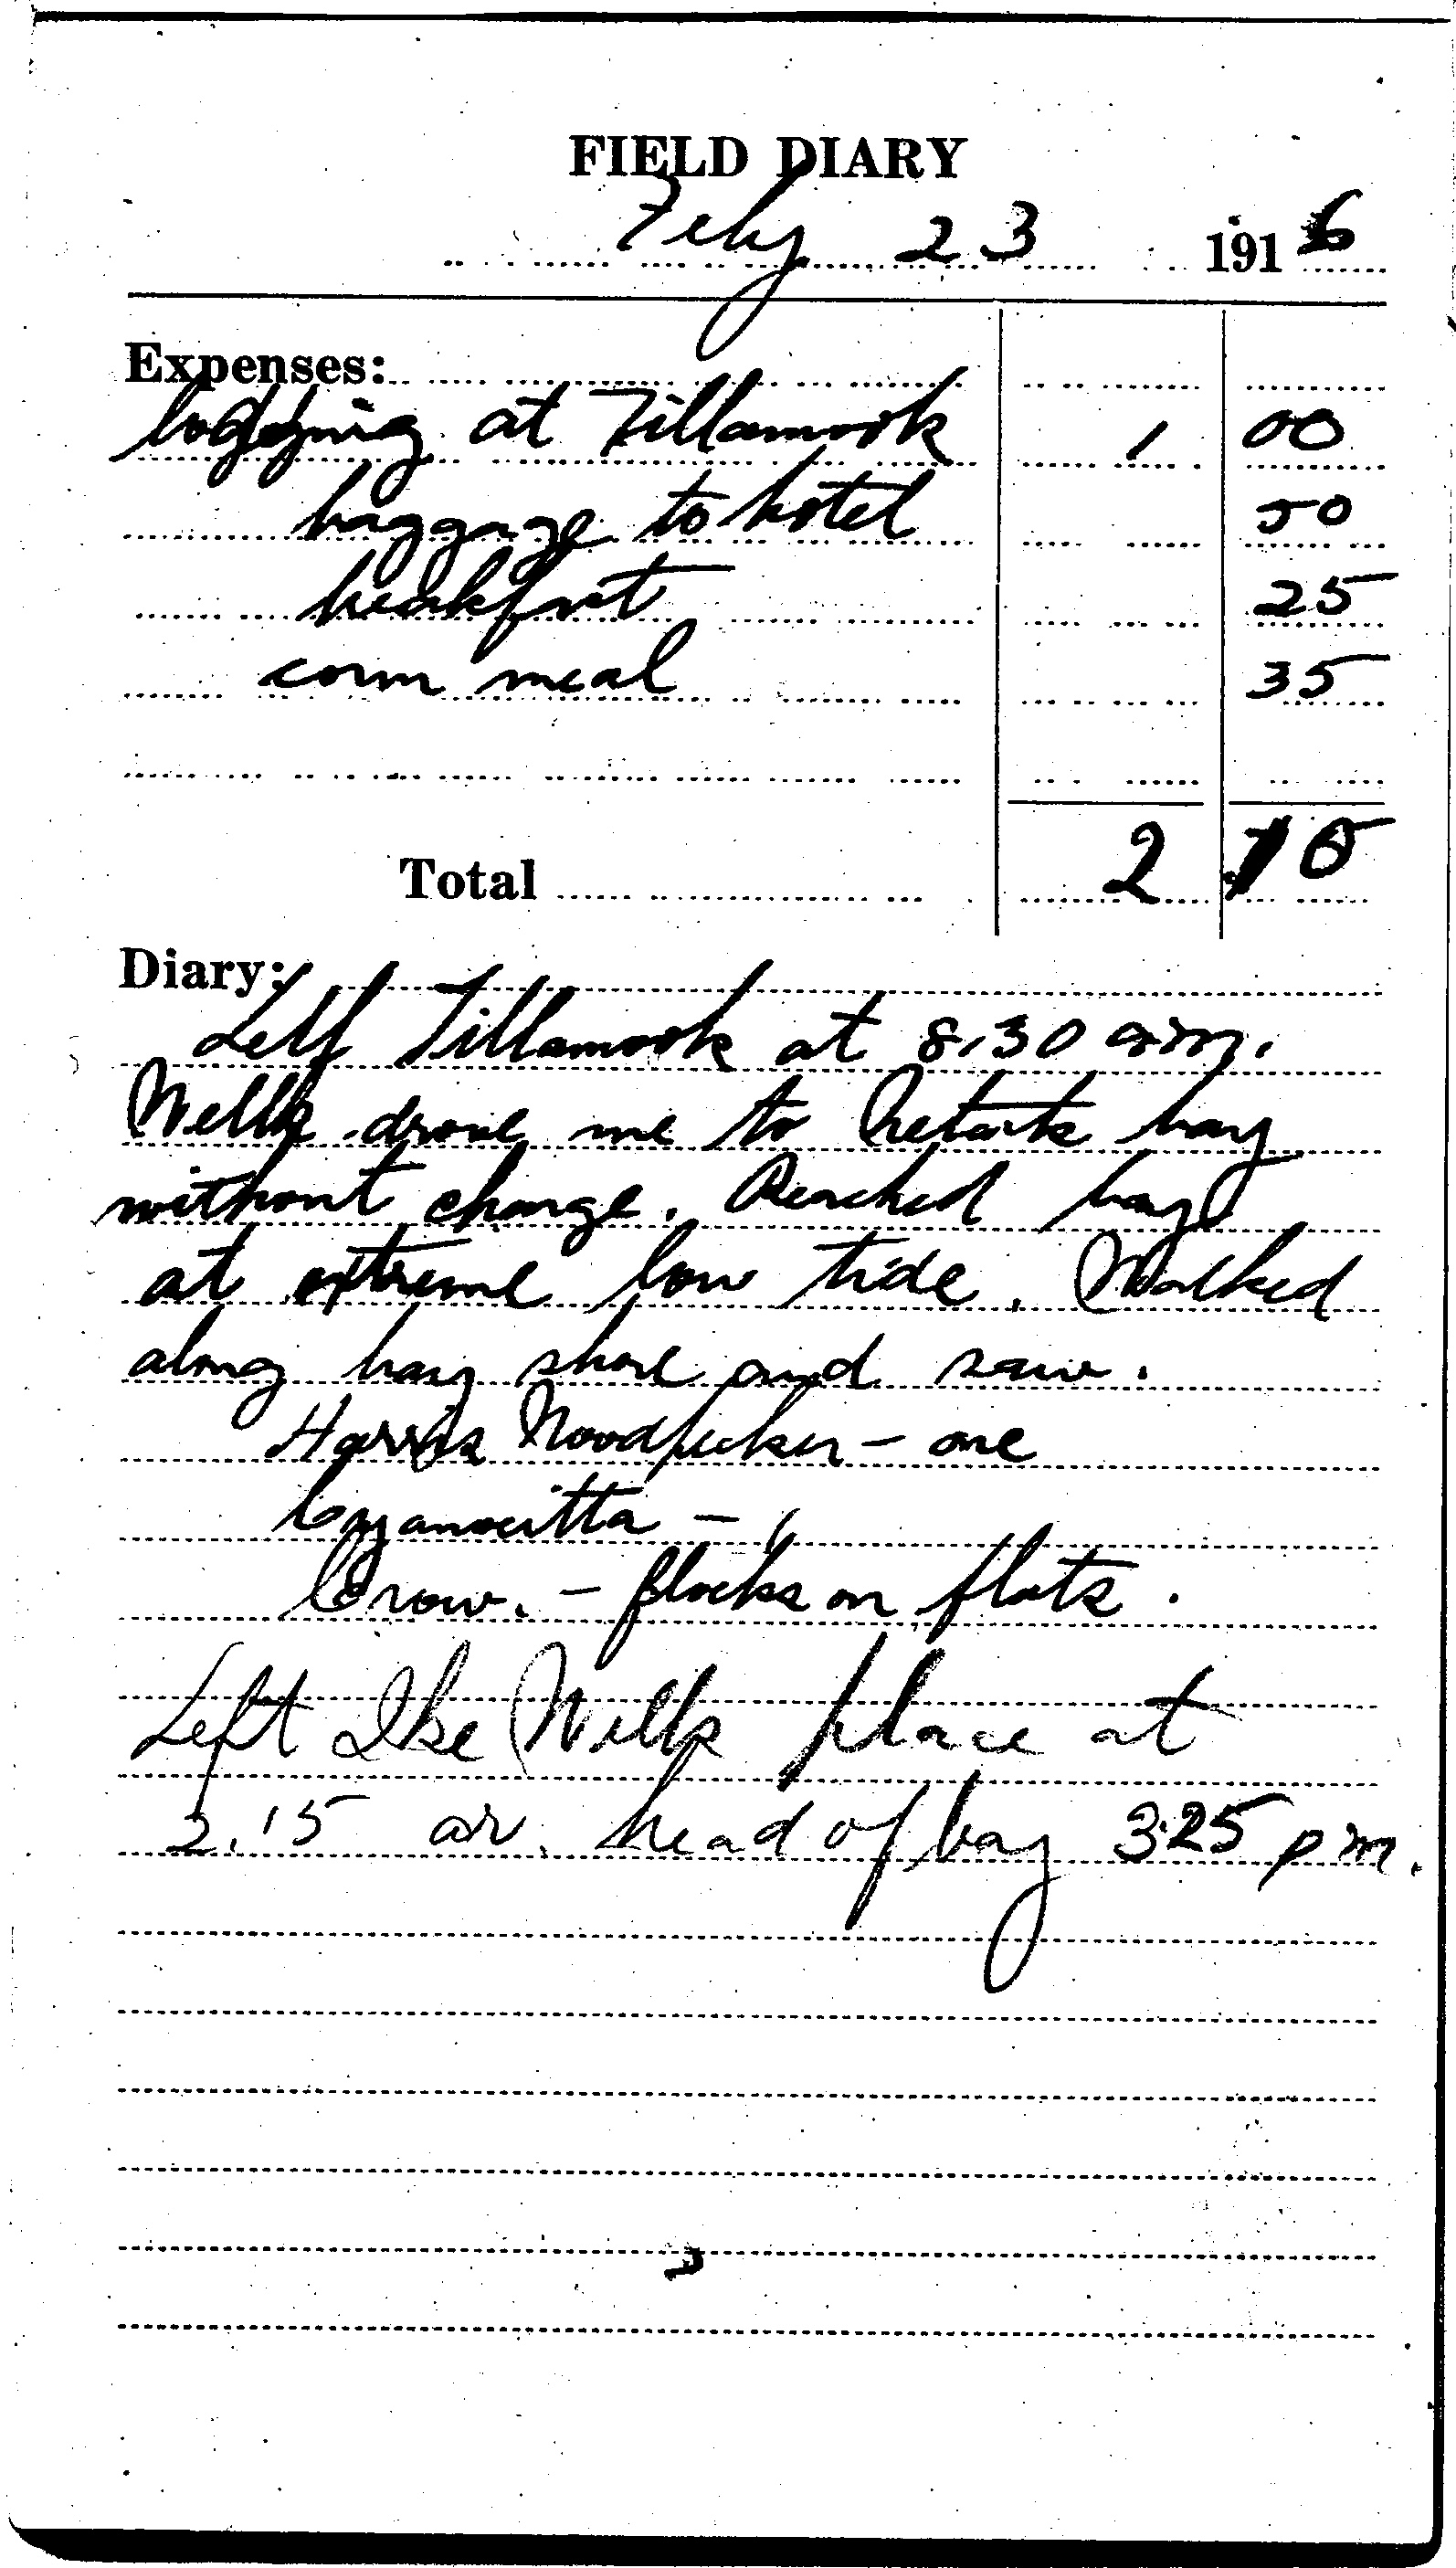 FIELD DIARY
Feby 23 1916
Expenses:
lodging at Tillamook 1 00
baggage to hotel 50
breakfast 25
corn meal 35
Total 2 10
Diary:
Left Tillamook at 8.30 a.m.
Wells drove me to Netarts bay
without charge. Reached bay
at extreme low tide. Walked
along bay shore and saw.
Harris Woodpecker - one
Cyanocitta - 1
Crow. - flocks on flats.
Left Ike Wells place at
2.15 ar. head of bay 3.25 pm.